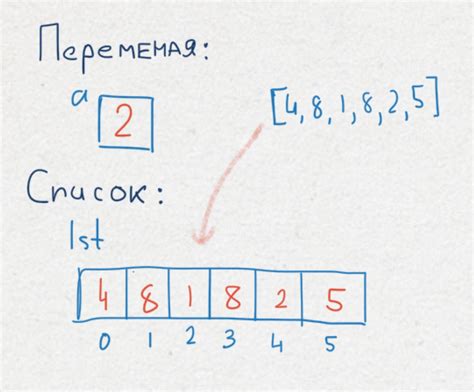 Перемемая:
a
2
[4,8,1,8,2,5]
Список:
lst
4 8 1 8 2 5
0 1 2 3 4 5